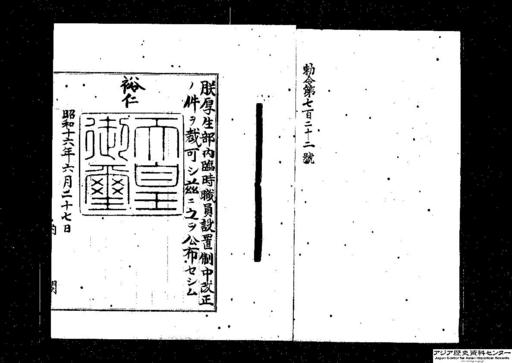 勅令第七百二十二號
朕厚生部內臨時職員設置制中改正
ノ件ヲ裁可シ茲ニ之ヲ公布セシム
裕仁
天皇
御璽
昭和十六年六月二十七日
內閣
アジア歴史資料センター
Japan Center for Asian Historical Records